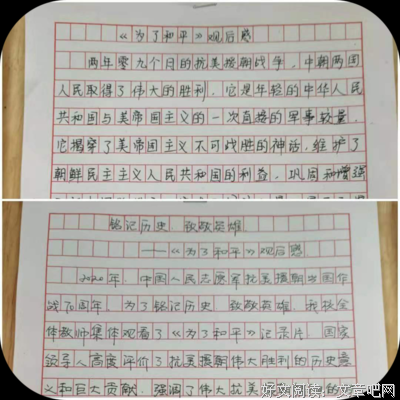 《为了和平》观后感
两年零九个月的抗美援朝战争，中朝两国
人民取得了伟大的胜利。它是年轻的中华人民
共和国与美帝国主义的一次直接的军事较量，
它揭穿了美帝国主义不可战胜的神话，维护了
朝鲜民主主义人民共和国的利益，巩固和增强
铭记历史 致敬英雄
——《为了和平》观后感
2020年，中国人民志愿军抗美援朝出国作
战70周年，为了铭记历史，致敬英雄，我校全
体教师集体观看了《为了和平》记录片，国家
领导人高度评价了抗美援朝伟大胜利的历史意
义和巨大贡献，强调了伟大抗美
好文阅读，文章吧网